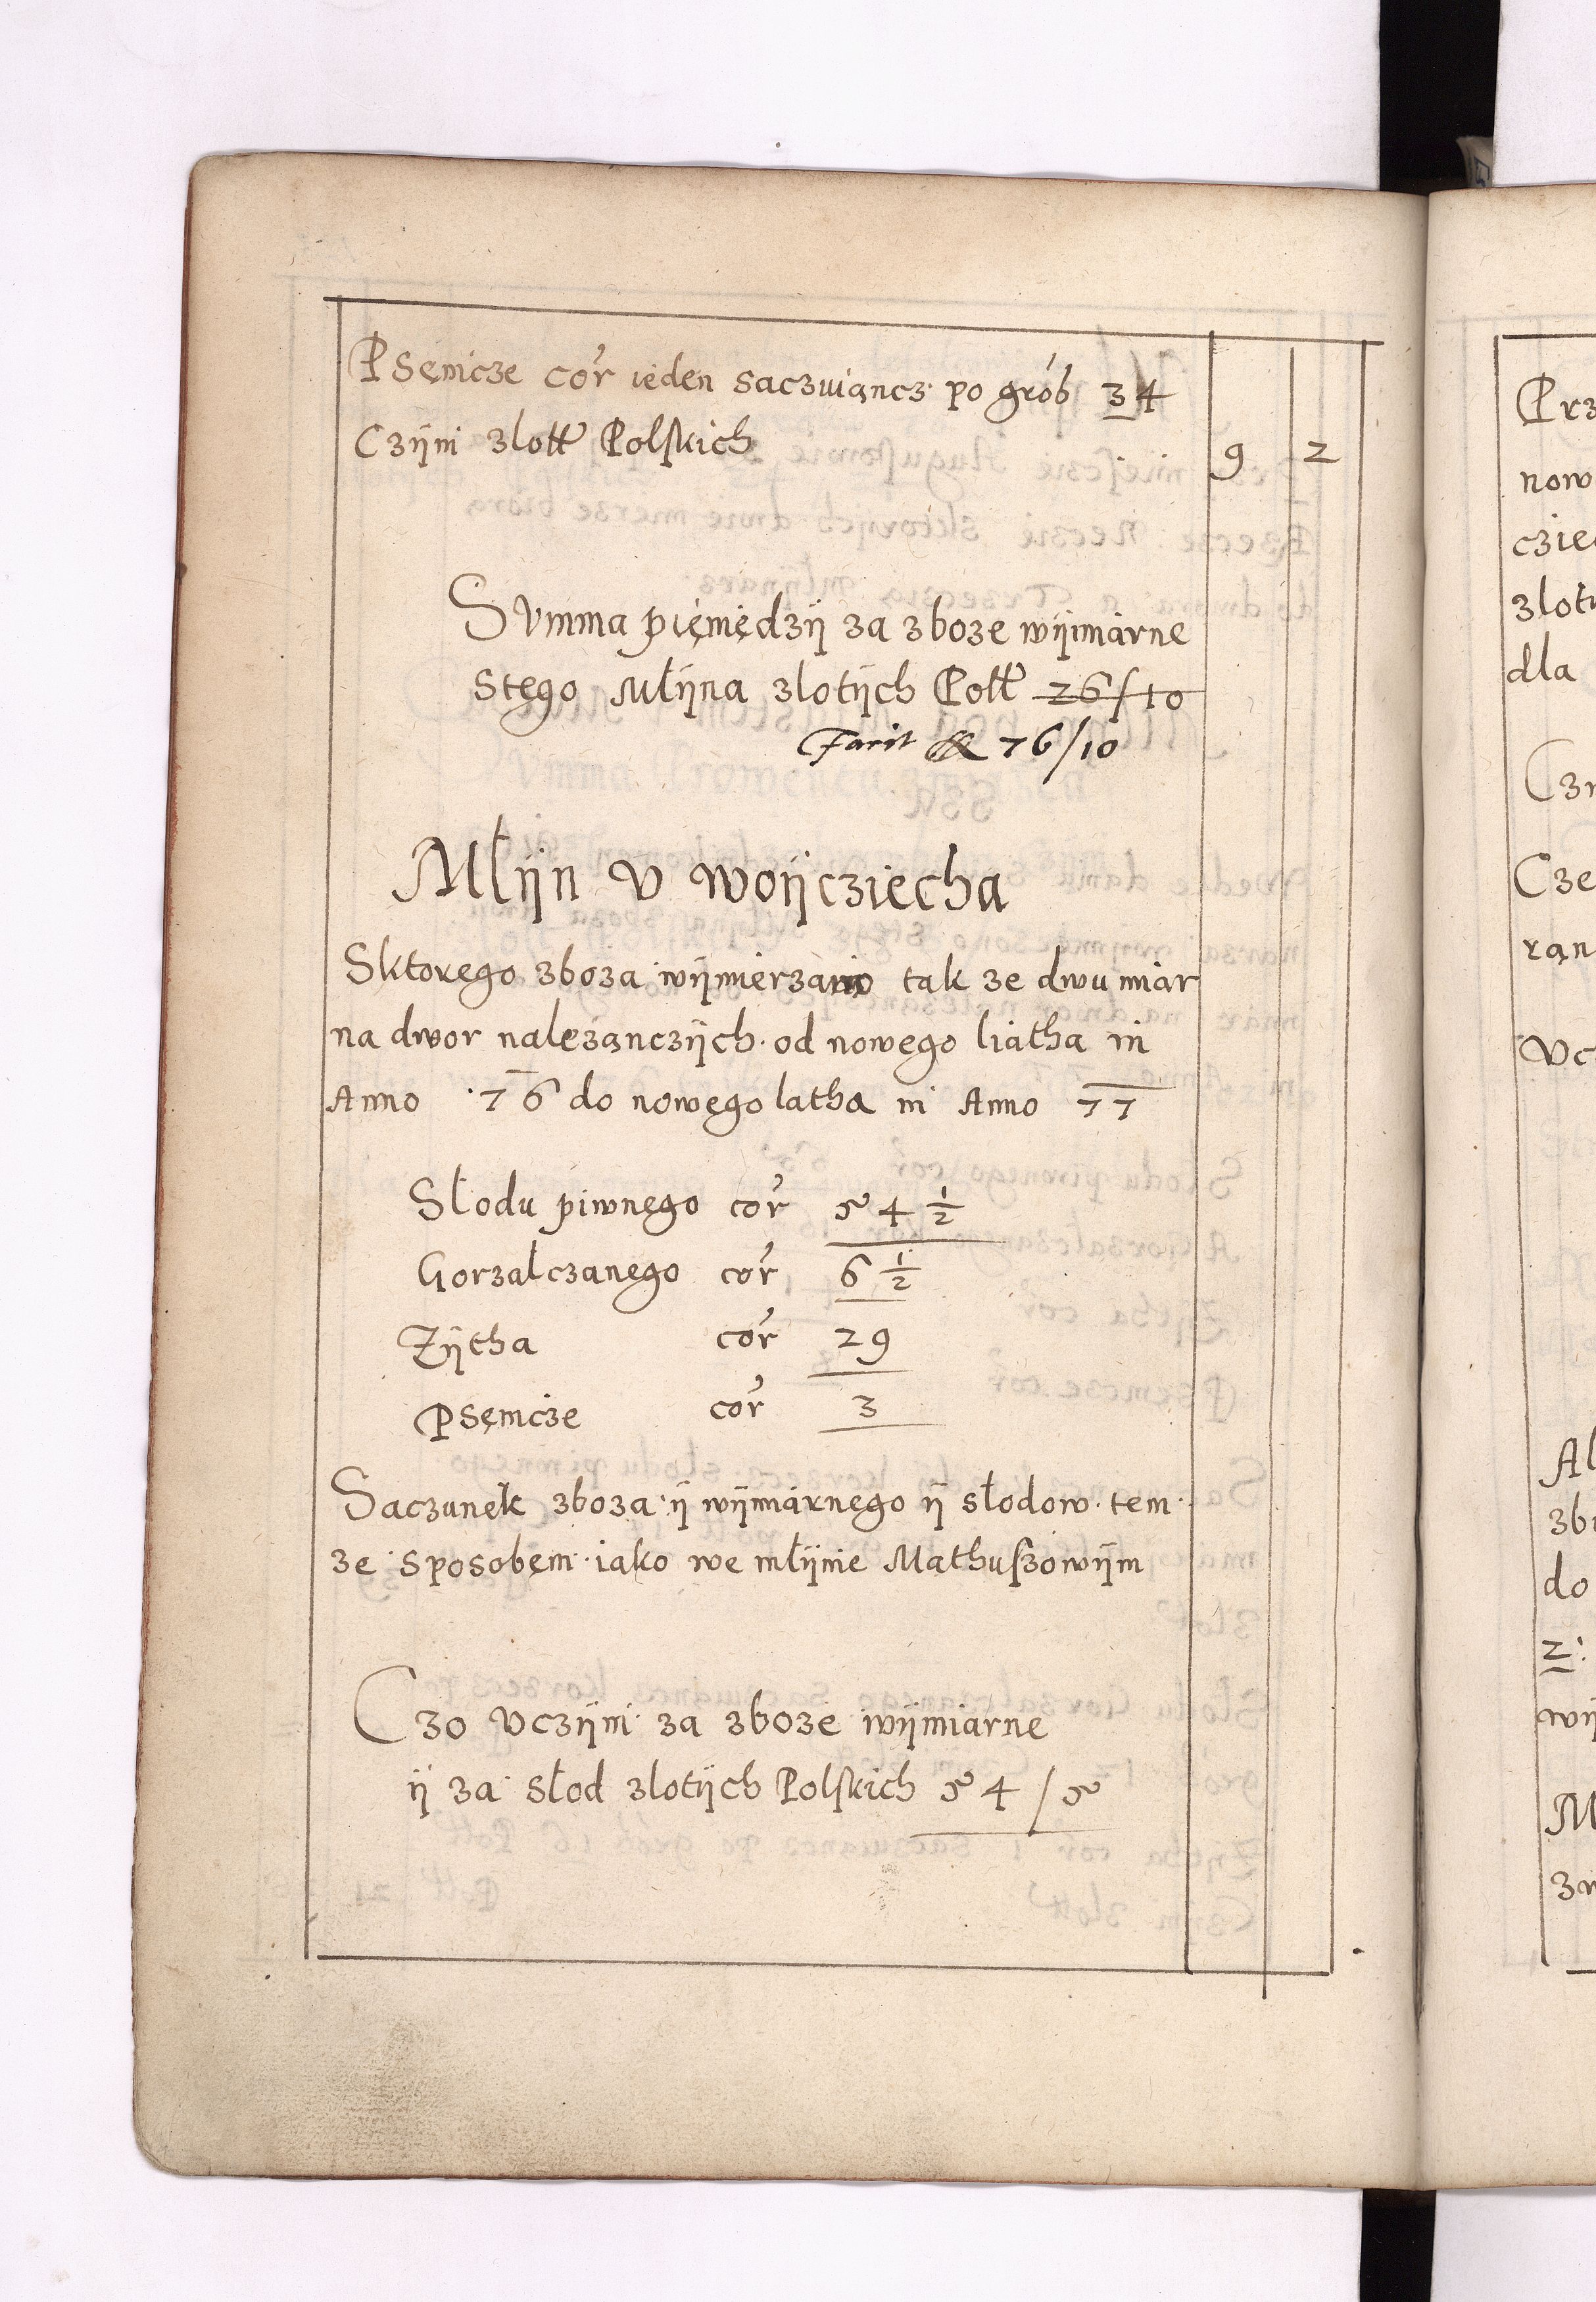 Psęnicze cor ieden saczuiąncz po grob 34
Czÿni zlott Polskich 9 2
Summa pięniędzÿ za zboze wÿmiarne
stęgo Młÿna zlotÿch Poll 26/10
Facit 76/10
Młÿn v Woÿcziecha
Sktoręgo zboza wÿmierzano tak ze dwu miar
na dwor nalezanczÿch od nowego liatha in
Anno 76 do nowęgo latha in Anno 77
Słodu piwnęgo cor 54 1/2
Gorzalczanęgo cor 6 1/2
Zÿtha cor 29
Psęnicze cor 3
Saczunek zboza ÿ wÿmiarnęgo ÿ słodow tem
ze sposobęm iako we młÿnie Mathuszowÿm
Czo vczÿni za zboze wÿmiarne
ÿ za słod zlotÿch Polskich 54/5
Prz
now
cziec
zlot
dla
Cze
ran
vc
Al
zb
do
2
wÿ
M